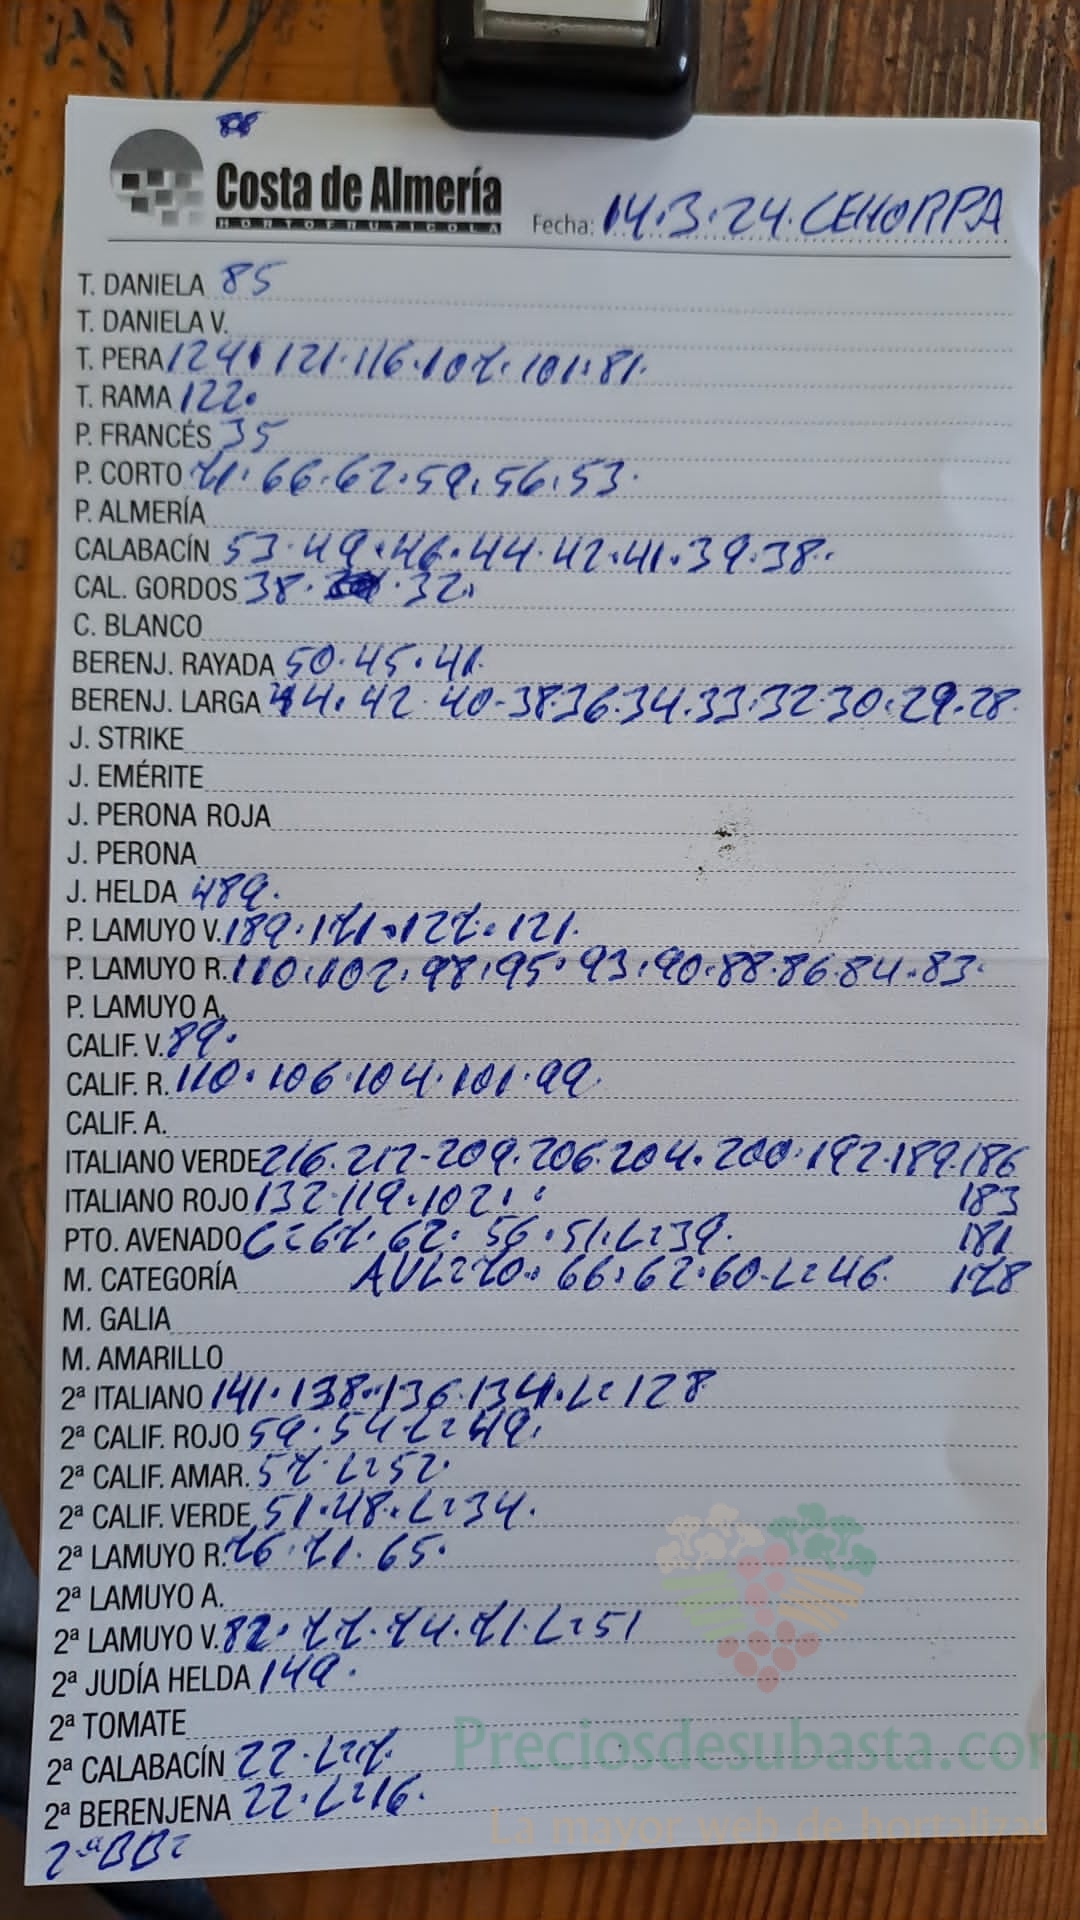 Costa de Almería
HORTOFRUTICOLA
Fecha: 14.3.24. CEHORPA
T. DANIELA 85
T. DANIELA V.
T. PERA 124. 121. 116. 107. 101. 81.
T. RAMA 122.
P. FRANCÉS 35
P. CORTO 71. 66. 62. 59. 56. 53.
P. ALMERÍA
CALABACÍN 53. 49. 46. 44. 42. 41. 39. 38.
CAL. GORDOS 38. 32.
C. BLANCO
BERENJ. RAYADA 50. 45. 41.
BERENJ. LARGA 44. 42. 40. 38. 36. 34. 33. 32. 30. 29. 28.
J. STRIKE
J. EMÉRITE
J. PERONA ROJA
J. PERONA
J. HELDA 489.
P. LAMUYO V. 189. 171. 127. 121.
P. LAMUYO R. 110. 102. 98. 95. 93. 90. 88. 86. 84. 83.
P. LAMUYO A.
CALIF. V. 89.
CALIF. R. 110. 106. 104. 101. 99.
CALIF. A.
ITALIANO VERDE 216. 212. 209. 206. 204. 200. 192. 189. 186
ITALIANO ROJO 132. 119. 102. : 183
PTO. AVENADO C=67. 62. 56. 51. L=39. 181
M. CATEGORÍA AVL=70. 66. 62. 60. L=46. 178
M. GALIA
M. AMARILLO
2ª ITALIANO 141. 138. 136. 134. L=128
2ª CALIF. ROJO 59. 54. L=49.
2ª CALIF. AMAR. 57. L=52.
2ª CALIF. VERDE 51. 48. L=34.
2ª LAMUYO R. 76. 71. 65.
2ª LAMUYO A.
2ª LAMUYO V. 82. 77. 74. 71. L=51
2ª JUDÍA HELDA 149.
2ª TOMATE
2ª CALABACÍN 22. L=7.
2ª BERENJENA 22. L=16.
2ªBB=
Preciosdesubasta.com
La mayor web de hortalizas